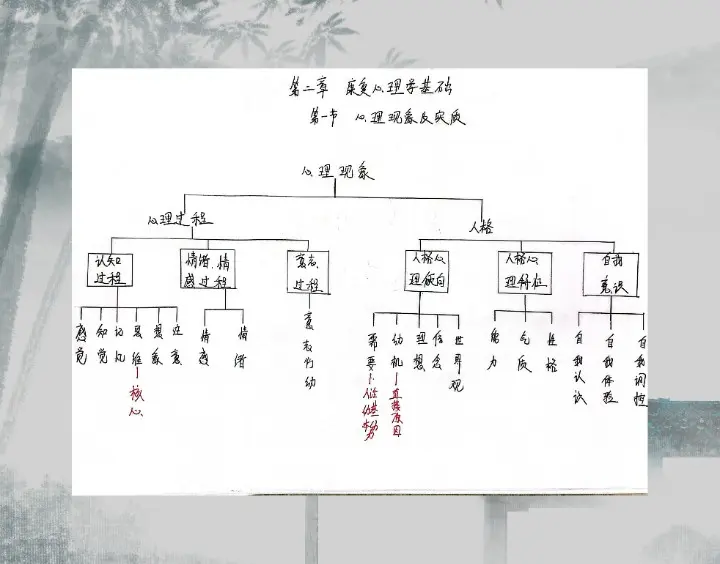 第二章 康复心理学基础
第一节 心理现象及实质
心理现象
心理过程 人格
认知过程 情绪、情感过程 意志过程 人格心理倾向 人格心理特征 自我意识
感觉 知觉 记忆 思维 想象 注意 情感 情绪 意志行动 需要 动机 理想 信念 世界观 能力 气质 性格 自我认识 自我体验 自我调控
核心 直接原因